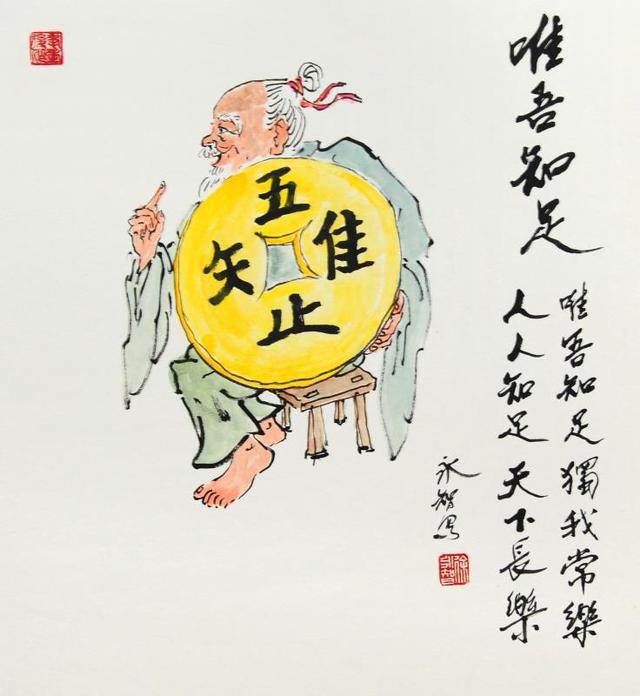 唯吾知足
唯吾知足獨我常樂
人人知足天下長樂
永智
隹
五
矢
止